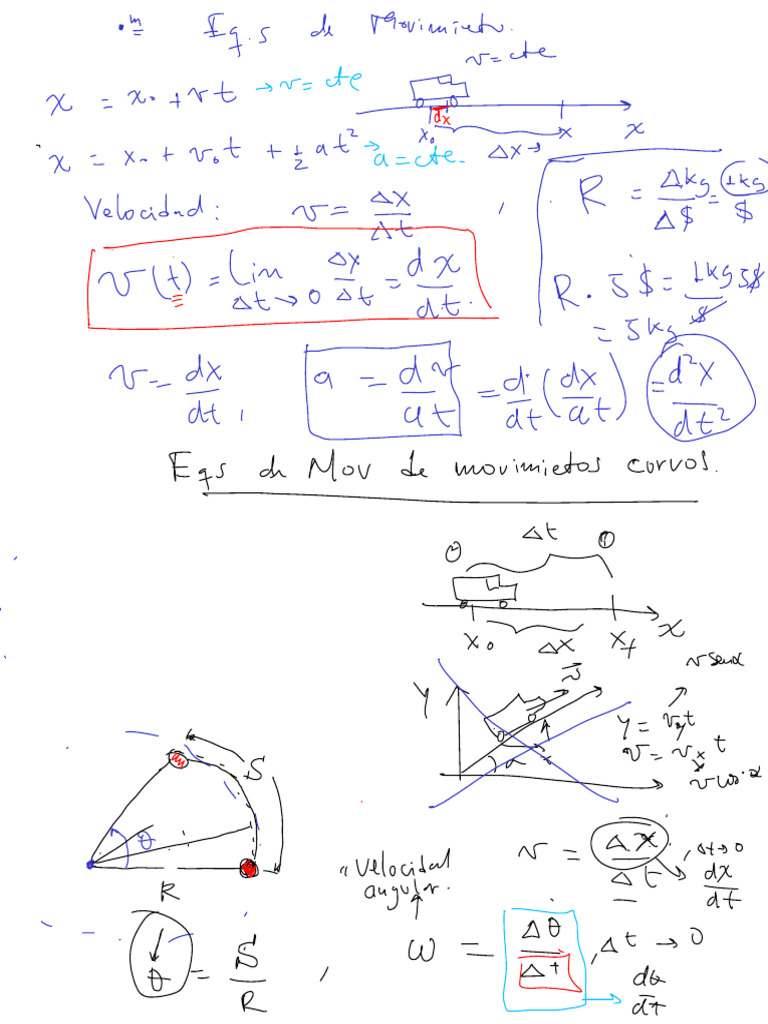 Eq.s de Movimiento.
v = cte
x = x₀ + vt → v = cte
dx
x₀ x x
x = x₀ + v₀t + ½ at² → a = cte.
Δx →
Velocidad: v = Δx/Δt ,
R = Δkg/Δ$ = 1kg/$
v(t) = Lim Δt→0 Δx/Δt = dx/dt.
R. 5$ = 1kg/$ 5$
= 5kg
v = dx/dt , a = dv/dt = d/dt (dx/dt) = d²x/dt²
Eqs de Mov de movimietos curvos.
Δt
x₀ Δx x_f x
v senα
Y v
y = v_y t
v = v_x t
α x
v cos α
S
θ
R
v = Δx/Δt , Δt→0 dx/dt
"velocidad
angular.
θ = S/R , ω = Δθ/Δt , Δt → 0
dθ/dt